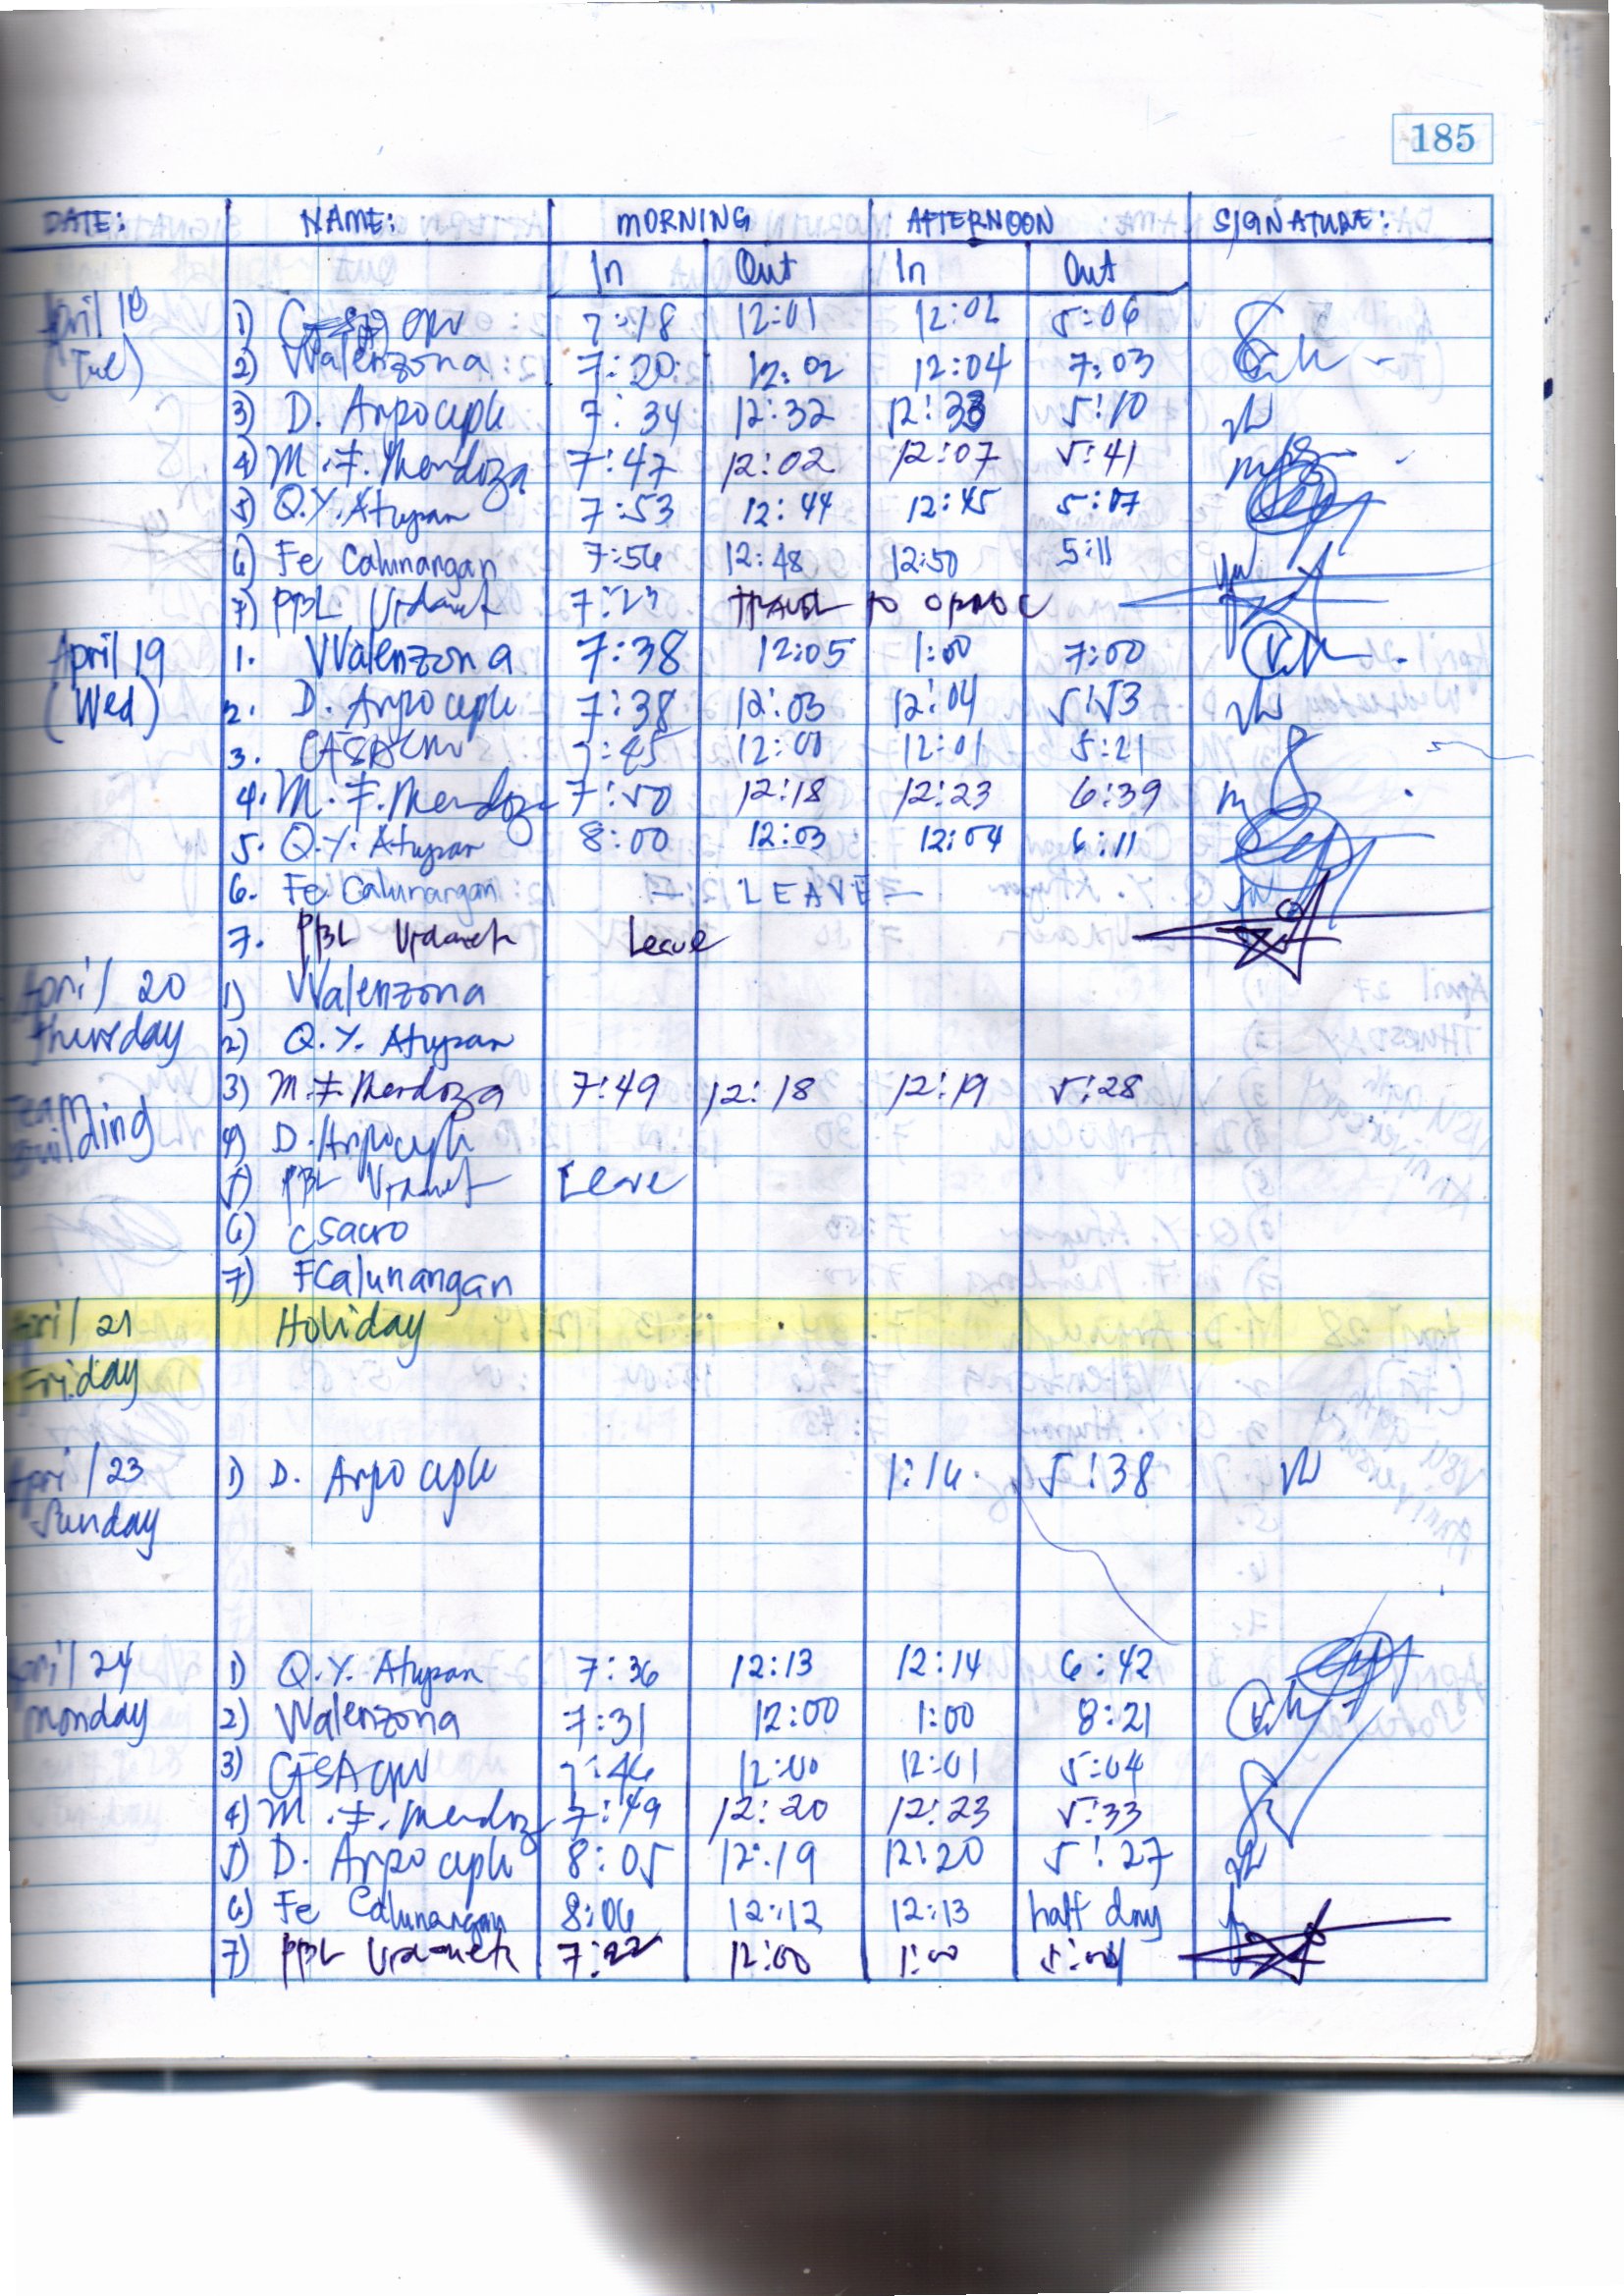 185
DATE: NAME: MORNING AFTERNOON SIGNATURE:
In Out In Out
April 18 1) 7:18 12:01 12:02 5:06
(Tue) 2) Valenzona 7:20 12:02 12:04 7:03
3) D. Arpo 7:34 12:32 12:33 5:10
4) M.F. Mendoza 7:47 12:02 12:07 5:41
5) Q.Y. Atupan 7:53 12:44 12:45 5:07
6) Fe Calunangan 7:56 12:48 12:50 5:11
7) PBL Urdaneta 7:23 TRAVEL to
April 19 1. Valenzona 7:38 12:05 1:00 7:00
(Wed) 2. D. Arpo 7:38 12:03 12:04 5:53
3. 7:45 12:00 12:01 5:21
4. M.F. Mendoza 7:50 12:18 12:23 6:39
5. Q.Y. Atupan 8:00 12:03 12:04 6:11
6. Fe Calunangan - LEAVE -
7. PBL Urdaneta Leave
April 20 1) Valenzona
Thursday 2) Q.Y. Atupan
Team 3) M.F. Mendoza 7:49 12:18 12:19 5:28
Building 4) D. Arpo
5) PBL Urdaneta Leave
6) CSacro
7) FCalunangan
April 21 Holiday
Friday
April 23 1) D. Arpo 1:16 5:38
Sunday
April 24 1) Q.Y. Atupan 7:36 12:13 12:14 6:42
Monday 2) Valenzona 7:31 12:00 1:00 8:21
3) 7:46 12:00 12:01 5:04
4) M.F. Mendoza 7:49 12:20 12:23 5:33
5) D. Arpo 8:05 12:19 12:20 5:27
6) Fe Calunangan 8:06 12:12 12:13 half day
7) PBL Urdaneta 7:22 12:00 1:00